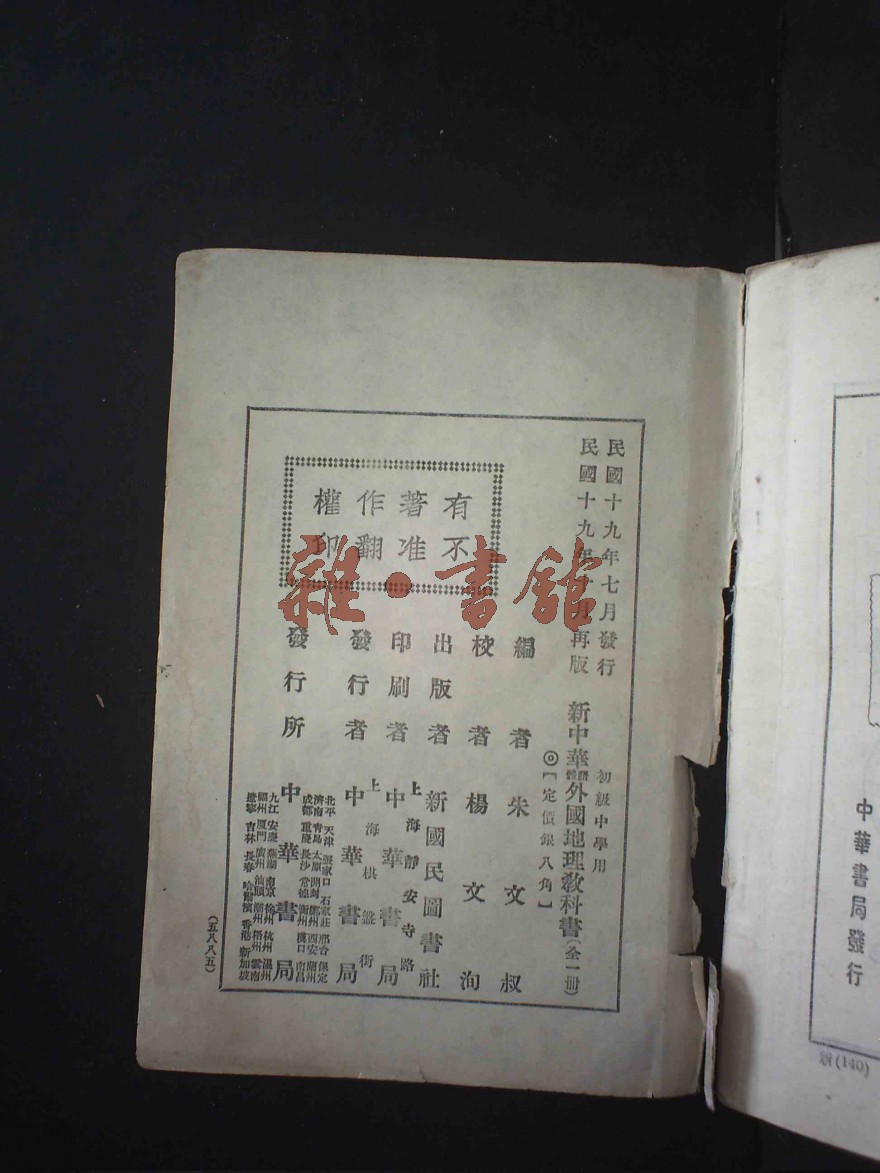 民國十九年七月發行
民國十九年十月再版
初級中學用
新中華語體外國地理敎科書(全一冊)
◎【定價銀八角】
編者朱文叔
校者楊文洵
出版者新國民圖書社
上海靜安寺路
印刷者中華書局
上海棋盤街
發行者中華書局
發行所中華書局
北平 天津 張家口 石家莊 邢台 保定
濟南 青島 太原 開封 鄭州 西安 蘭州
成都 重慶 長沙 常德 衡州 漢口 南昌
九江 安慶 蕪湖 南京 徐州 杭州 溫州
福州 廈門 廣州 汕頭 潮州 梧州 雲南
遼寧 吉林 長春 哈爾濱 香港 新加坡
有著作權
不准翻印
(五八八五)
雜·書館
中華書局發行
(140)